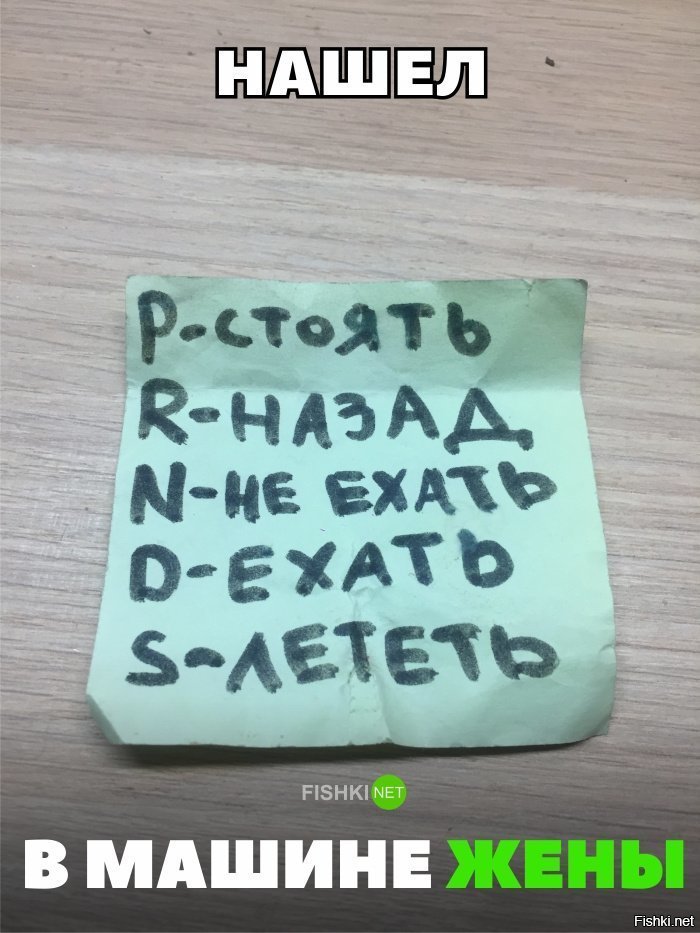 НАШЕЛ
P-СТОЯТЬ
R-НАЗАД
N-НЕ ЕХАТЬ
D-ЕХАТЬ
S-ЛЕТЕТЬ
FISHKI NET
В МАШИНЕ ЖЕНЫ
Fishki.net